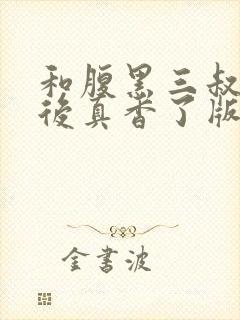 和腹黑三叔
後真香了版
金書波